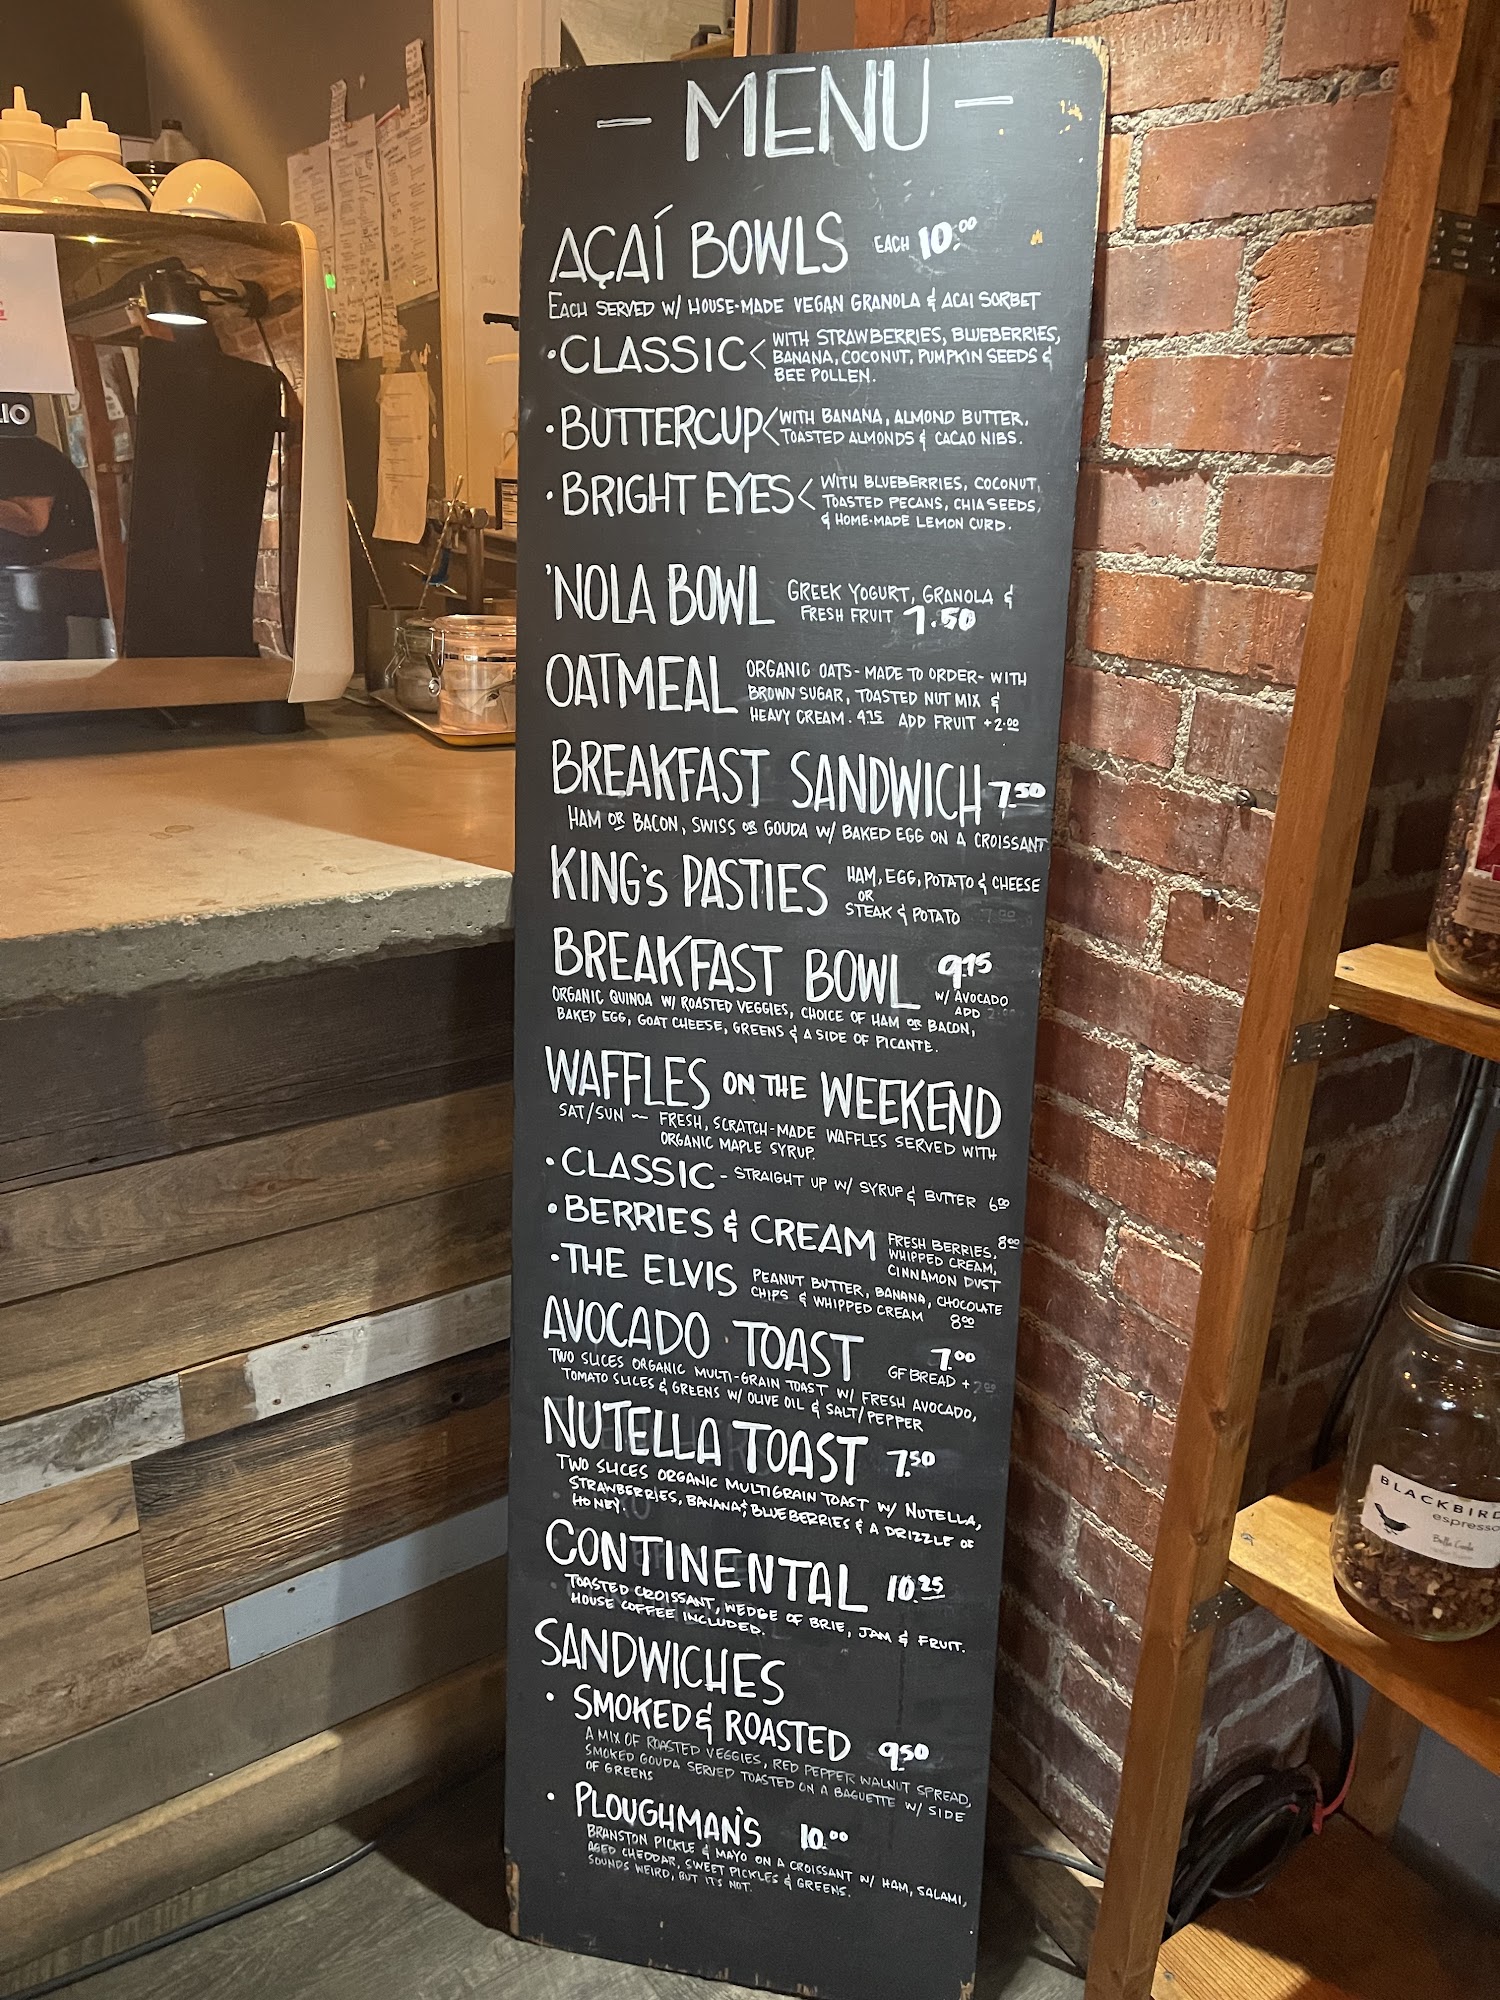 — MENU —
AÇAÍ BOWLS EACH 10.00
EACH SERVED W/ HOUSE-MADE VEGAN GRANOLA & ACAI SORBET
• CLASSIC < WITH STRAWBERRIES, BLUEBERRIES,
BANANA, COCONUT, PUMPKIN SEEDS &
BEE POLLEN.
• BUTTERCUP < WITH BANANA, ALMOND BUTTER,
TOASTED ALMONDS & CACAO NIBS.
• BRIGHT EYES < WITH BLUEBERRIES, COCONUT,
TOASTED PECANS, CHIA SEEDS,
& HOME-MADE LEMON CURD.
'NOLA BOWL GREEK YOGURT, GRANOLA &
FRESH FRUIT 7.50
OATMEAL ORGANIC OATS - MADE TO ORDER - WITH
BROWN SUGAR, TOASTED NUT MIX &
HEAVY CREAM. 4.75 ADD FRUIT +2.00
BREAKFAST SANDWICH 7.50
HAM OR BACON, SWISS OR GOUDA W/ BAKED EGG ON A CROISSANT
KING'S PASTIES HAM, EGG, POTATO & CHEESE
OR
STEAK & POTATO 7.00
BREAKFAST BOWL 9.75
W/ AVOCADO
ADD 2.00
ORGANIC QUINOA W/ ROASTED VEGGIES, CHOICE OF HAM OR BACON,
BAKED EGG, GOAT CHEESE, GREENS & A SIDE OF PICANTE.
WAFFLES ON THE WEEKEND
SAT/SUN ~ FRESH, SCRATCH-MADE WAFFLES SERVED WITH
ORGANIC MAPLE SYRUP.
• CLASSIC - STRAIGHT UP W/ SYRUP & BUTTER 6.00
• BERRIES & CREAM FRESH BERRIES, 8.00
WHIPPED CREAM,
CINNAMON DUST
• THE ELVIS PEANUT BUTTER, BANANA, CHOCOLATE
CHIPS & WHIPPED CREAM 8.00
AVOCADO TOAST 7.00
GF BREAD + 2.00
TWO SLICES ORGANIC MULTI-GRAIN TOAST W/ FRESH AVOCADO,
TOMATO SLICES & GREENS W/ OLIVE OIL & SALT/PEPPER
NUTELLA TOAST 7.50
TWO SLICES ORGANIC MULTIGRAIN TOAST W/ NUTELLA,
STRAWBERRIES, BANANA, BLUEBERRIES & A DRIZZLE OF
HONEY.
CONTINENTAL 10.25
TOASTED CROISSANT, WEDGE OF BRIE, JAM & FRUIT.
HOUSE COFFEE INCLUDED.
SANDWICHES
• SMOKED & ROASTED 9.50
A MIX OF ROASTED VEGGIES, RED PEPPER WALNUT SPREAD,
SMOKED GOUDA SERVED TOASTED ON A BAGUETTE W/ SIDE
OF GREENS
• PLOUGHMAN'S 10.00
BRANSTON PICKLE & MAYO ON A CROISSANT W/ HAM, SALAMI,
AGED CHEDDAR, SWEET PICKLES & GREENS.
SOUNDS WEIRD, BUT IT'S NOT.
BLACKBIRD
espresso